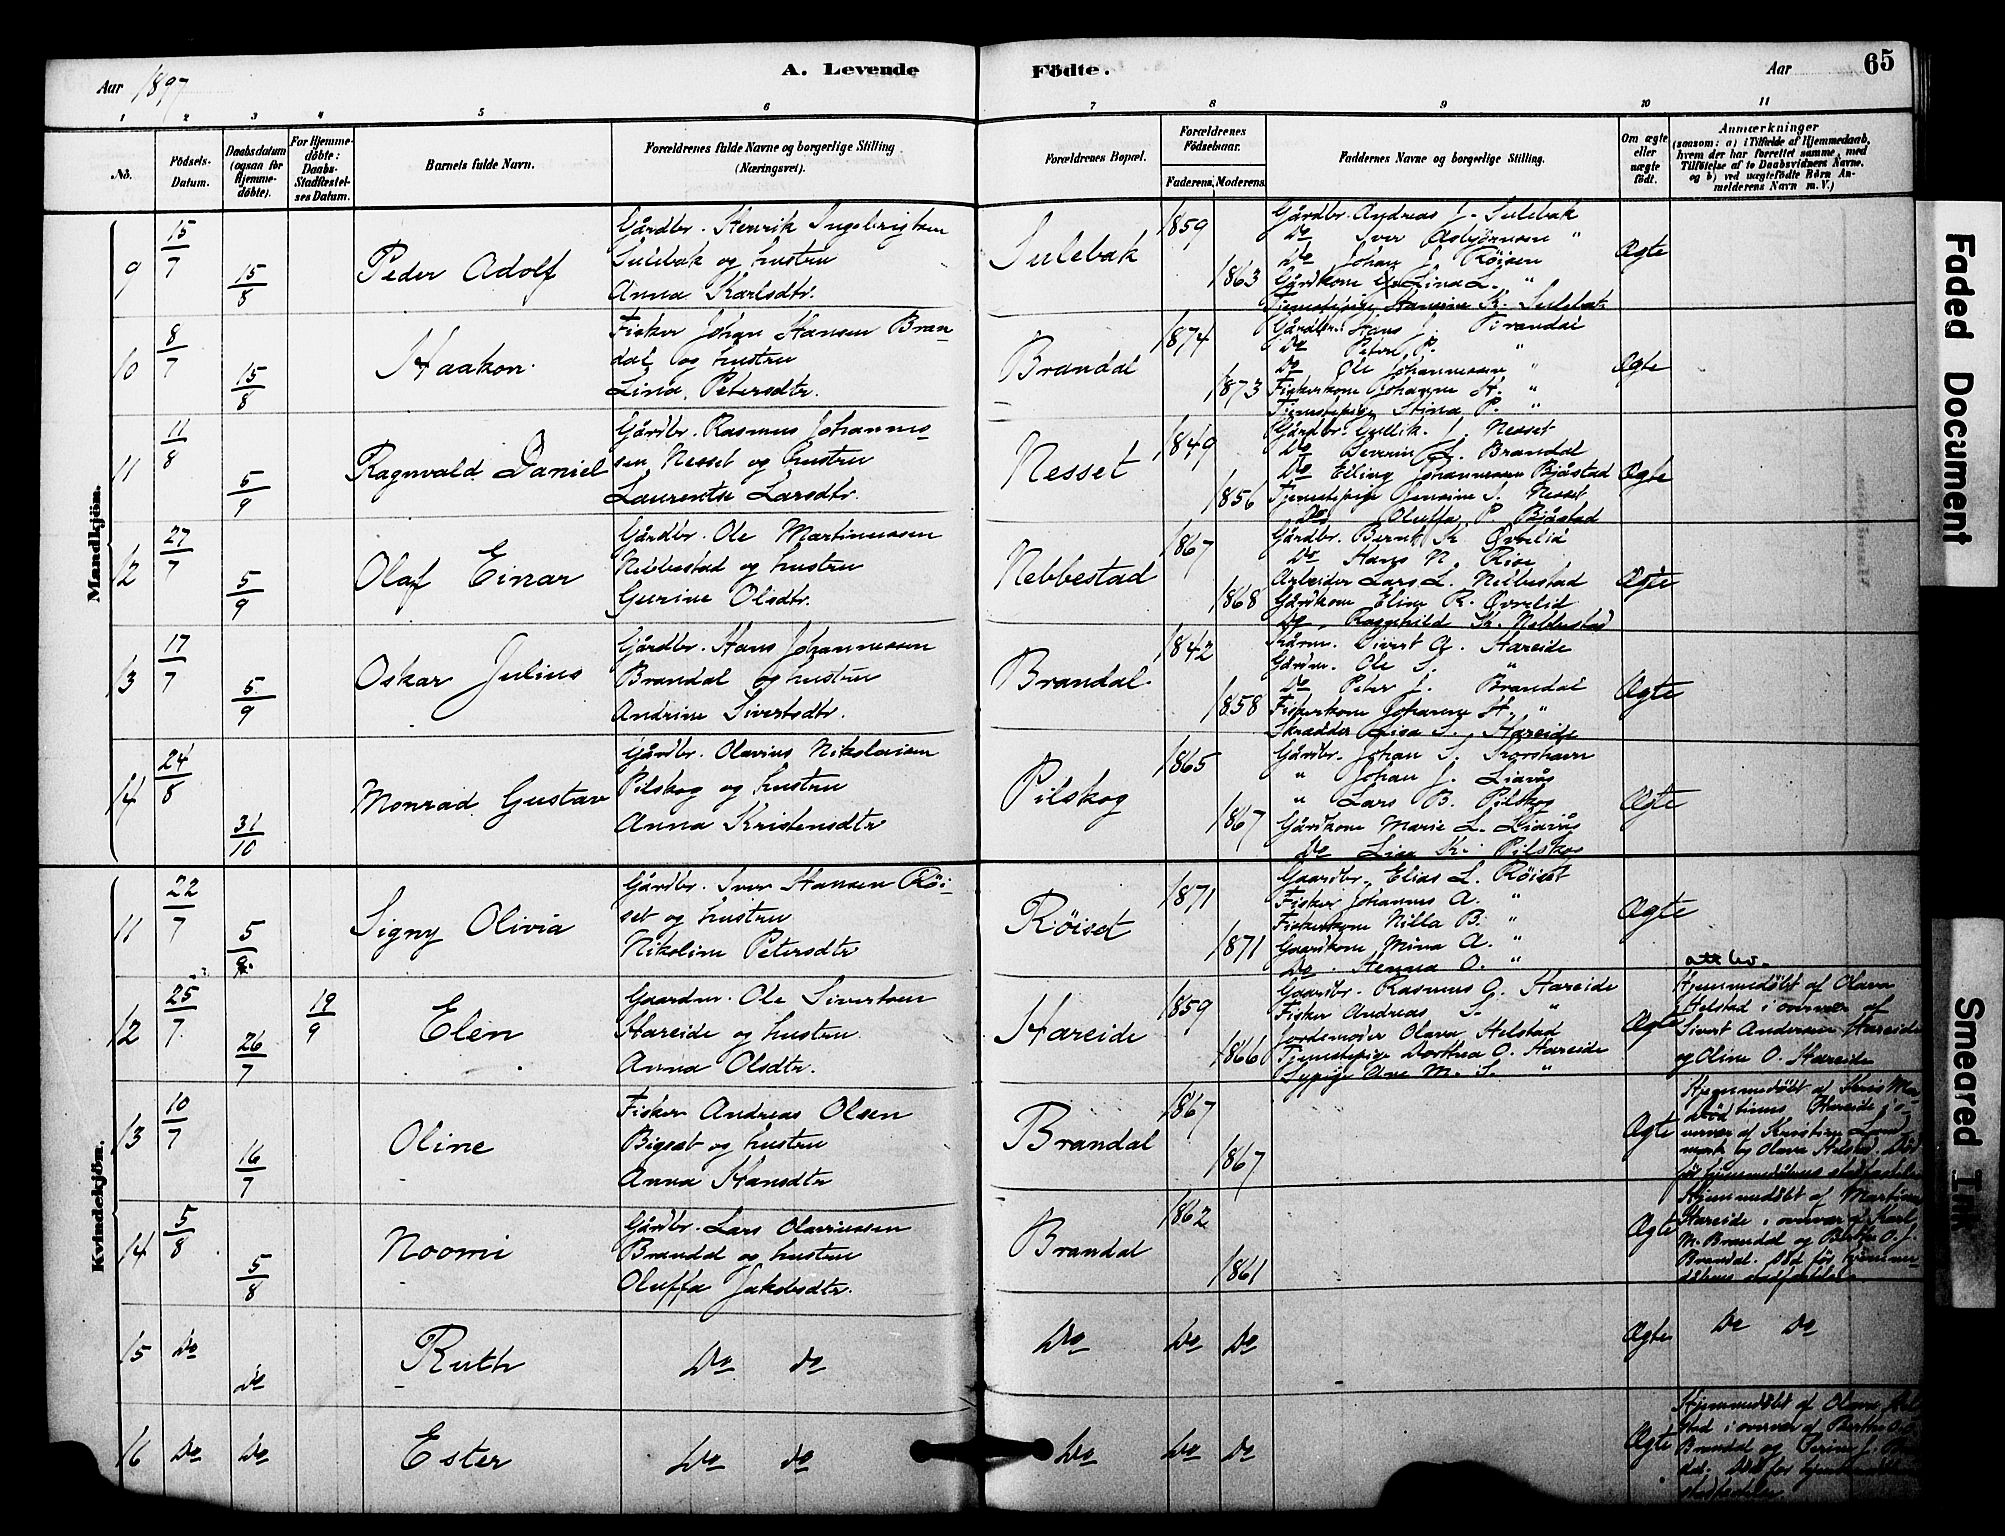 Aar 1897
A. Levende
Födte.
Aar
65
1 2 3 4 5 6 7 8 9 10 11
No.
Födsels-
Datum.
Daabsdatum
(ogsaa for
Hjemme-
döbte).
For Hjemme-
döbte:
Daabs-
Stadfæstel-
ses Datum.
Barnets fulde Navn.
Forældrenes fulde Navne og borgerlige Stilling
(Næringsvei).
Forældrenes Bopæl.
Forældrenes
Födselsaar.
Faderens. Moderens.
Faddernes Navne og borgerlige Stilling.
Om ægte
eller
uægte
födt.
Anmærkninger
(saasom: a) i Tilfælde af Hjemmedaab,
hvem der har forrettet samme, med
Tilföielse af to Daabsvidners Navne,
og b) ved uægtefödte Börn An-
melderens Navn m. V.)
Mandkjön.
9 15/7 15/8 Peder Adolf
Gårdbr. Henrik Ingebrigtsen
Sulebak og hustru
Anna Karlsdtr.
Sulebak 1859 1863
Gårdbr. Andreas J. Sulebak
Do Iver Asbjörnsen "
Do Johan J. Röisen
Gårdkone Lina L. "
Tjenestepige Hansine K. Sulebak
Ægte
10 8/7 15/8 Haakon
Fisker Johan Hansen Bran-
dal og hustru
Lina Petersdtr.
Brandal 1874 1873
Gårdbr. Hans J. Brandal
Do Peter P. "
Do Ole Johannessen "
Fiskerkone Johanne H. "
Tjenestepige Stina P. "
Ægte
11 11/8 5/9 Ragnvald Daniel
Gårdbr. Rasmus Johannes-
sen Nesset og hustru
Laurentse Larsdtr.
Nesset 1849 1856
Gårdbr. Gullik J. Nesset
Do Severin L. Brandal
Do Elling Johannessen Bjåstad
Tjenestepige Jensine S. Nesset
Do Oluffa P. Bjåstad
Ægte
12 27/7 5/9 Olaf Einar
Gårdbr. Ole Martinussen
Nebbestad og hustru
Gurine Olsdtr.
Nebbestad 1867 1868
Gårdbr. Bernt K. Överlid
Do Hans N. Rise
Arbeider Lars L. Nebbestad
Gårdkone Eline R. Överlid
Do Ragnhild K. Nebbestad
Ægte
13 17/7 5/9 Oskar Julius
Gårdbr. Hans Johannessen
Brandal og hustru
Andrine Sivertsdtr.
Brandal 1842 1858
Kårm. Sivert A. Hareide
Gårdm. Ole S. "
Do Peter J. Brandal
Fiskerkone Johanne H. "
Skrædder Lisa S. Hareide
Ægte
14 24/8 31/10 Monrad Gustav
Gårdbr. Olavius Nikolaisen
Pilskog og hustru
Anna Kristensdtr
Pilskog 1865 1867
Gårdbr. Johan S. Korshavn
" Johan J. Liavåg
" Lars B. Pilskog
Gårdkone Marie L. Liavåg
Do Lina K. Pilskog
Ægte
Kvindekjön.
11 22/7 5/9 Signy Olivia
Gårdbr. Iver Hansen Röi-
set og hustru
Nikoline Petersdtr
Röiset 1871 1871
Gaardbr. Elias L. Röiset
Fisker Johannes A. "
Fiskerkone Nilla B. "
Gaardkone Mina A. "
Do. Henna O. "
Ægte
12 25/7 26/7 19/9 Elen
Gaardm. Ole Sivertsen
Hareide og hustru
Anna Olsdtr.
Hareide 1859 1866
Gaardbr. Rasmus O. Hareide
Fisker Andreas S. "
Jordemoder Olava Helstad
Tjenestepige Dorthea O. Hareide
Sypige Ane M. S. "
Ægte
att bev.
Hjemmedöbt af Olava
Helstad i overvær af
Sivert Andersen Hareide
og Oline O. Hareide
13 10/7 16/7 Oline
Fisker Andreas Olsen
Bigset og hustru
Anna Hansdtr
Brandal 1867 1867
Ægte
Hjemmedöbt af
tinus Hareide i o-
vervær af Kristian
og Olava Helstad. Död
för hjemmedåbens stadfæstelse
14 5/8 5/8 Noomi
Gårdbr. Lars Olavussen
Brandal og hustru
Oluffa Jakobsdtr.
Brandal 1862 1861
Ægte
Hjemmedöbt af Martinus
Hareide i overvær af Karl
M. Brandal og Berthe O. J.
Brandal. Död för hjemme-
dåbens stadfæstelse.
15 Do Do Ruth Do Do
Do Do Do Ægte Do Do
16 Do Do Ester Do Do
Do Do Do Ægte
Hjemmedöbt af Olava Hel-
stad i overvær af Berthe O. J.
Brandal og Perine J.
dal. Död för hjemmedåbens
stadfæstelse.
Faded Document
Smeared Ink